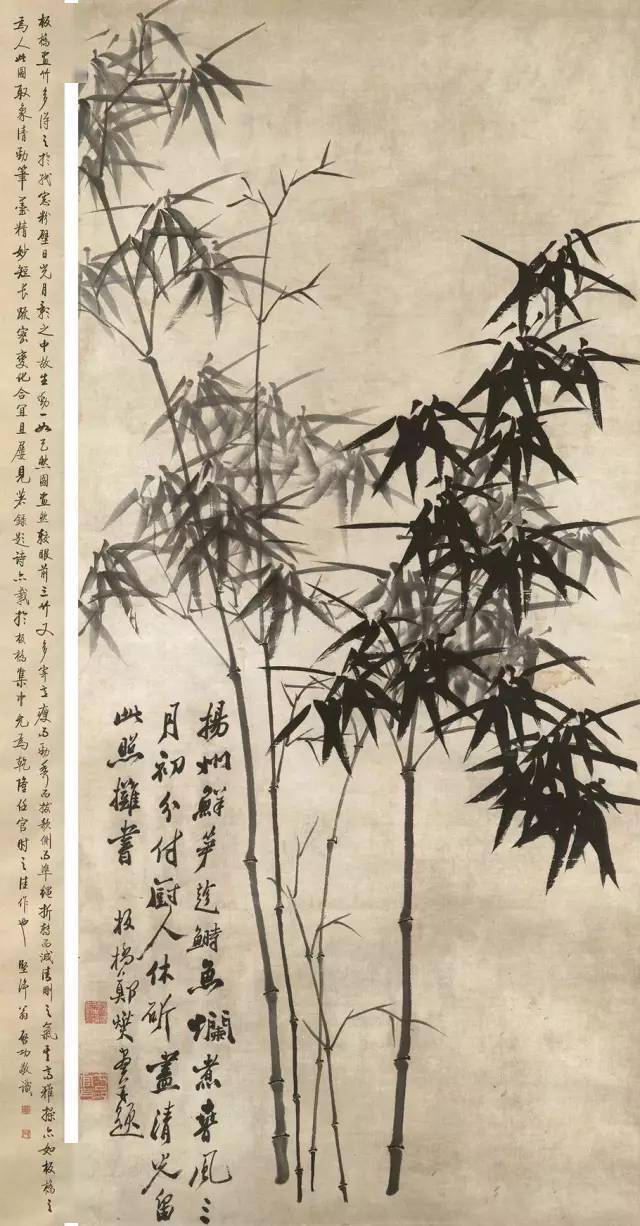 揚州鮮笋趁鰣魚爛煮春風三
月初分付廚人休斫盡清光留
此照攤書
板橋鄭燮畫并題
板橋畫竹多得之於紙窗粉壁日光月影之中故生動一如己然圖畫然較眼前三竹又多寄高瘦而勁秀而拔欹側而準繩折轉而清剛之氣其高雅操亦如板橋之
為人此圖取象清勁筆墨精妙短長疏密變化合宜且屢見著錄題詩亦載於板橋集中允為乾隆任官時之佳作也 堅淨翁啟功敬識